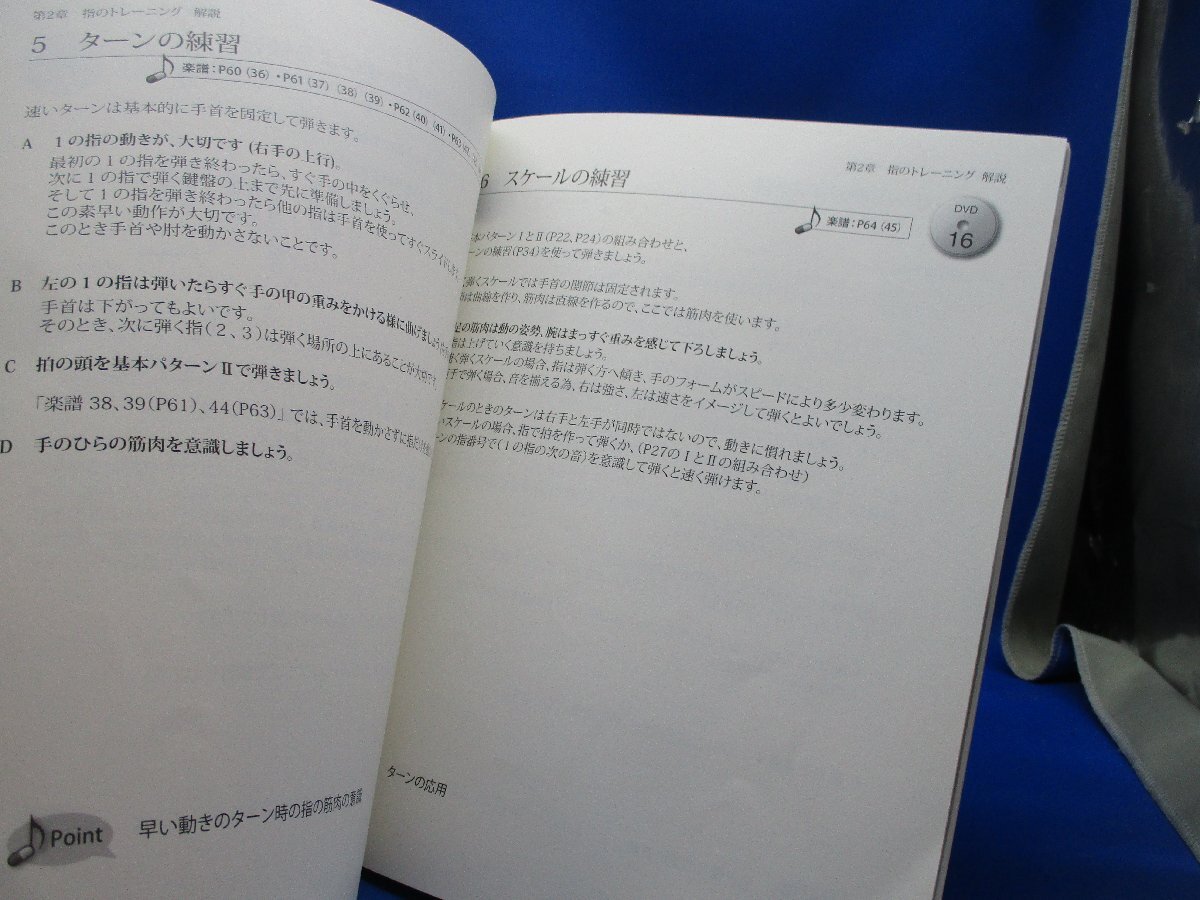 第2章 指のトレーニング 解説
5 ターンの練習
楽譜：P60（36）・P61（37）（38）（39）・P62（40）（41）・P63
速いターンは基本的に手首を固定して弾きます。
A 1の指の動きが、大切です（右手の上行）。
最初の1の指を弾き終わったら、すぐ手の中をくぐらせ、
次に1の指で弾く鍵盤の上まで先に準備しましょう。
そして1の指を弾き終わったら他の指は手首を使ってすぐスライド
この素早い動作が大切です。
このとき手首や肘を動かさないことです。
B 左の1の指は弾いたらすぐ手の甲の重みをかける様に曲げましょう
手首は下がってもよいです。
そのとき、次に弾く指（2、3）は弾く場所の上にあることが大切です
C 拍の頭を基本パターンⅡで弾きましょう。
「楽譜 38、39（P61）、44（P63）」では、手首を動かさずに
D 手のひらの筋肉を意識しましょう。
Point 早い動きのターン時の指の筋肉の意識
第2章 指のトレーニング 解説
6 スケールの練習
楽譜：P64（45）
DVD
16
本パターンⅠとⅡ（P22、P24）の組み合わせと、
ーンの練習（P34）を使って弾きましょう。
弾くスケールでは手首の関節は固定されます。
は曲線を作り、筋肉は直線を作るので、ここでは筋肉を使います。
足の筋肉は動の姿勢、腕はまっすぐ重みを感じて下ろしましょう。
指は上げていく意識を持ちましょう。
弾くスケールの場合、指は弾く方へ傾き、手のフォームがスピードにより多少変わります。
手で弾く場合、音を揃える為、右は強さ、左は速さをイメージして弾くとよいでしょう。
ケールのときのターンは右手と左手が同時ではないので、動きに慣れましょう。
いスケールの場合、指で拍を作って弾くか、（P27のⅠとⅡの組み合わせ）
ーンの指番号で（1の指の次の音）を意識して弾くと速く弾けます。
ターンの応用